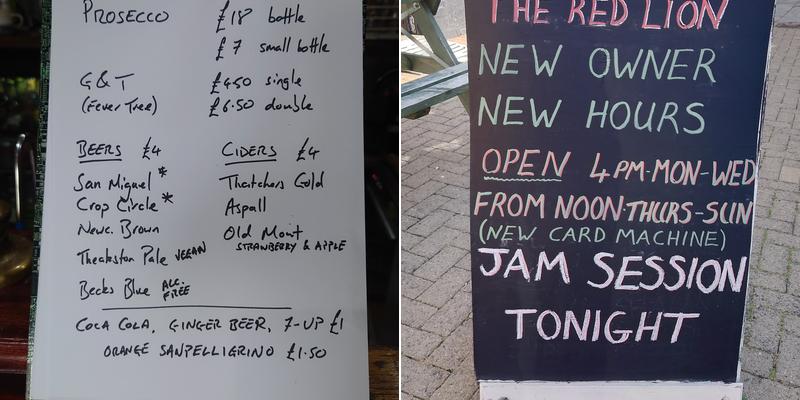 PROSECCO £18 bottle
£7 small bottle
G & T £4.50 single
(Fever Tree) £6.50 double
BEERS £4
San Miguel *
Crop Circle *
Newc. Brown
Theakston Pale VEGAN
Becks Blue ALC. FREE
CIDERS £4
Thatchers Gold
Aspall
Old Mout
STRAWBERRY & APPLE
COCA COLA, GINGER BEER, 7-UP £1
ORANGE SANPELLIGRINO £1.50
THE RED LION
NEW OWNER
NEW HOURS
OPEN 4PM·MON-WED
FROM NOON·THURS-SUN
(NEW CARD MACHINE)
JAM SESSION
TONIGHT